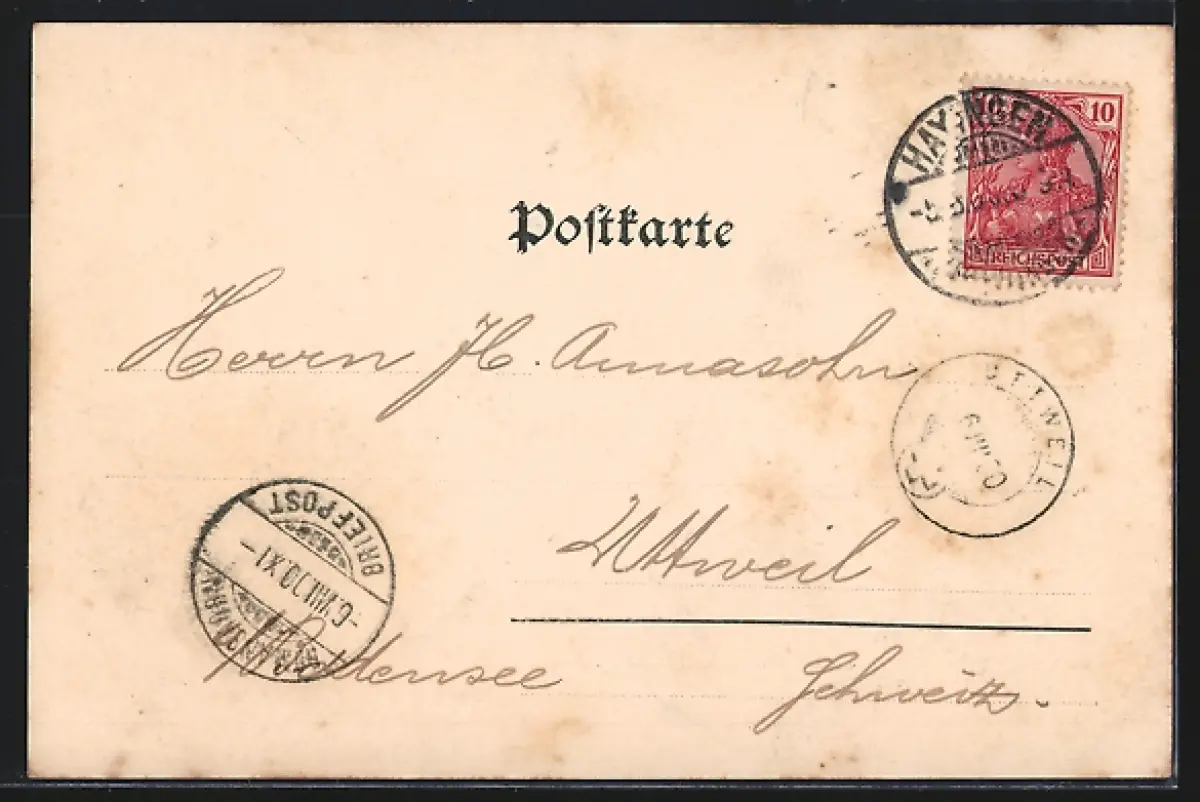 10
HAYINGEN
REICHSPOST
Postkarte
Herrn H. Annasohn
UTTWEIL
6 VIII 00
BRIEFPOST
-6.VIII.00.XI-
Uttweil
Bodensee Schweiz.